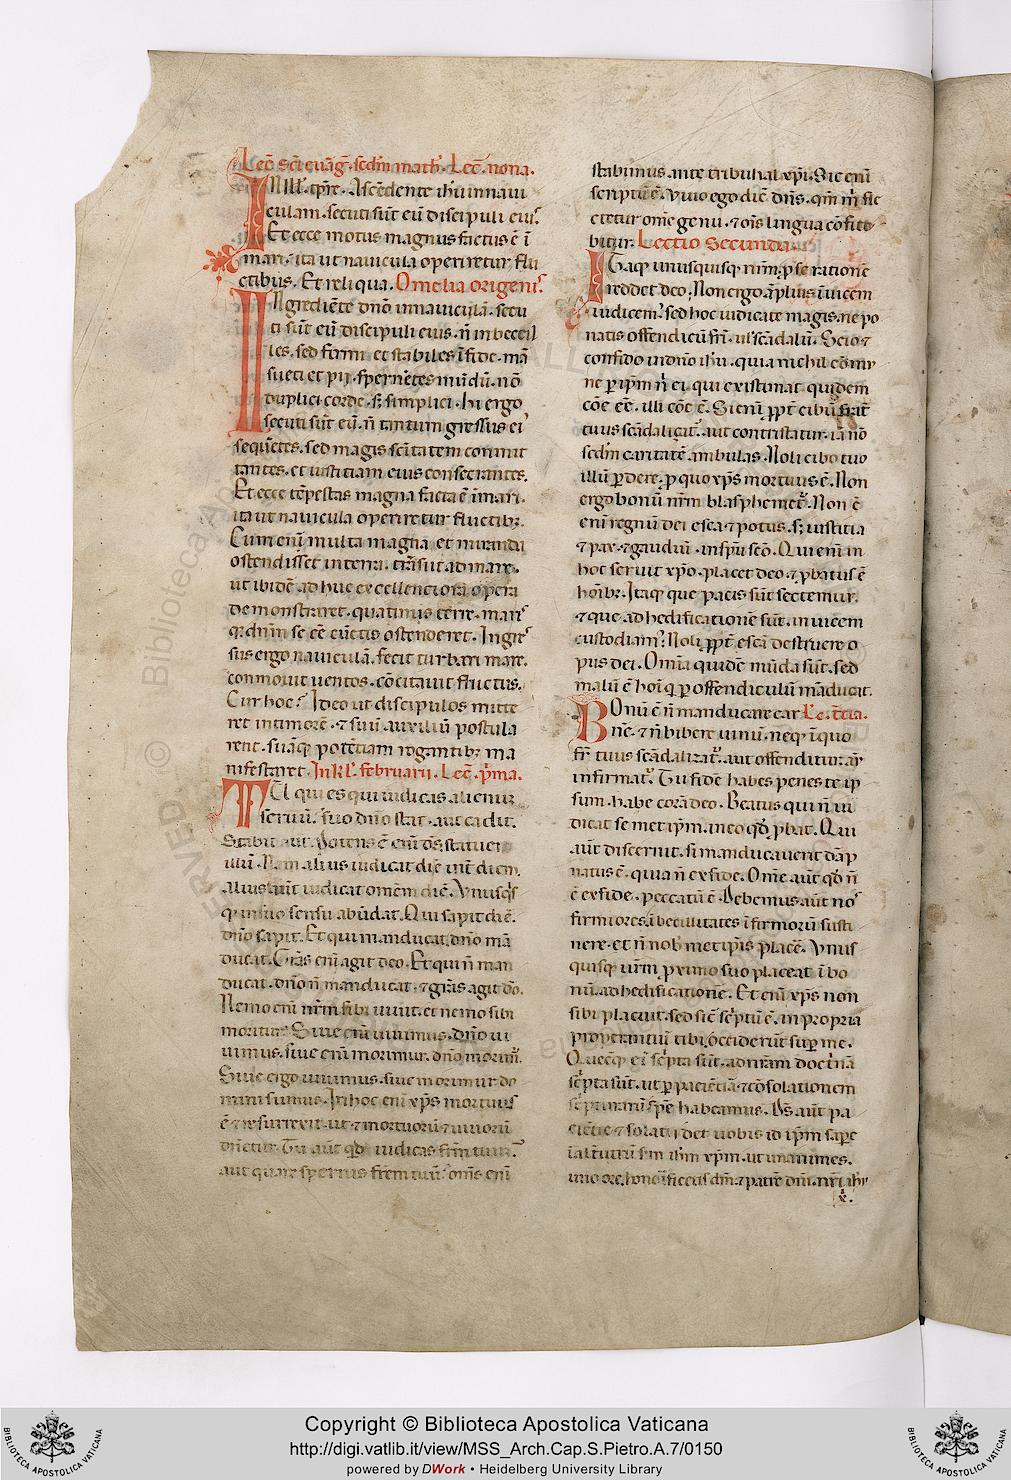 Lec̄. sc̄i evāḡ. scd̄m math̄. Lec̄. nona.
IN Ill̄. tp̄re. Ascēdente ih̄u in navi
culam. secuti sūt eū discipuli eius.
Et ecce motus magnus factus ē ī
mari. ita ut navicula operiretur flu
ctibus. Et reliqua. Omelia origenis.
INgrediēte dn̄o in naviculā. secu
ti sūt eū discipuli eius. n̄ imbecil
les. sed firmi et stabiles ī fide. mā
sueti et pij. spernētes mūdū. nō
duplici corde. s; simplici. hi ergo
secuti sūt eū. n̄ tantum gressus ei'
sequētes. sed magis sc̄itatem comit
tantes. et iustitiam eius consecrantes.
Et ecce tēpestas magna facta ē ī mari.
ita ut navicula operiretur fluctib;.
Cum enī multa magna et miranda
ostendisset in terra. trāsiit ad mare.
ut ibidē adhuc excellentiora opera
demonstraret. quatinus terre. maris
q; dn̄m se eē cūctis ostenderet. Ingres
sus ergo naviculā. fecit turbari mare.
commovit ventos. cōcitavit fluctus.
Cur hoc? Ideo ut discipulos mitte
ret in timorē. et suū auxiliū postula
rent. suāq; potētiam rogantib; ma
nifestaret. In kl̄. februarii. Lec̄. p̄ma.
TU quis es qui iudicas alienum
servū. suo dn̄o stat. aut cadit.
Stabit aut̄. Potens ē enī ds̄ statuere
illū. Nam alius iudicat diē int̄ diem.
alius aūt iudicat omēm diē. Vnusqs
q; in suo sensu abūdat. Qui sapit diē.
dn̄o sapit. Et qui manducat. dn̄o mā
ducat. Grās enī agit deo. Et qui n̄ man
ducat. dn̄o n̄ manducat. et grās agit dō.
Nemo enī nr̄m sibi vivit. et nemo sibi
moritur. Sive enī vivimus. dn̄o vi
vimus. sive enī morimur. dn̄o morim̄.
Sive ergo vivimus. sive morimur do
mini sumus. In hoc enī xp̄s mortuus
ē et resurrexit. ut et mortuorū et vivorū
dn̄etur. Tu aūt qd̄ iudicas frēm tuū?
aut quare spernis frēm tuū? om̄s enī
stabimus. ante tribunal xp̄i. Sic enī
scriptū ē. Vivo ego dic̄ dn̄s. qm̄ m̄ fle
ctetur om̄e genu. et oīs lingua cōfite
bitur. Lectio Secunda.
ITaq; unusquisq; nr̄m. p̄ se rationē
reddet deo. Non ergo āplius īvicem
iudicem'. sed hoc iudicate magis. ne po
natis offendicū frī. vl' scādalū. Scio et
confido in dn̄o ih̄u. quia nichil cōmv
ne p ip̄m n̄ ei qui existimat quidem
cōe eē. illi cōe ē. Si enī ppt̄ cibū frat̄
tuus scādalicat̄. aut contristatur. iā nō
scd̄m caritatē ambulas. Noli cibo tuo
illū pdere. p quo xp̄s mortuus ē. Non
ergo bonū nr̄m blasphemet̄. Non ē
enī regnū dei esca. et potus. s; iustitia
et pax. et gaudiū. in sp̄u sc̄o. Qui enī in
hoc servit xp̄o. placet deo. et pbatus ē
hoīb;. Itaq; que pacis sūt sectemur.
et que ad hedificationē sūt. in vicem
custodiam'. Noli ppt̄ escā destruere o
pus dei. Omīa quidē mūda sūt. sed
malū ē hoī q p offendiculū māducat.
BOnū ē n̄ manducare car Lc̄. t̄cia.
nē. et n̄ bibere vinū. neq; ī quo
fr̄ tuus scādalizat̄. aut offenditur. aut̄
infirmat̄. Tu fidē habes penes te ip̄
sum. habe corā deo. Beatus qui n̄ iu
dicat semet ip̄m. in eo qd̄ pbat. Qui
aūt discernit. si manducaverit dāp
natus ē. quia n̄ ex fide. Om̄e aūt qd̄ n̄
ē ex fide. peccatū ē. Debemus aūt nos
firmiores. ībecillitates īfirmorū susti
nere. et n̄ nob̄ met ip̄is placē. Vnus
quisq; vr̄m. pximo suo placeat ī bo
nū. ad hedificationē. Et enī xp̄s non
sibi placuit. sed sic̄ sc̄ptū ē. inpropria
properantiū tibi. ōcciderūt sup̄ me.
Quecq; enī sc̄pta sūt. ad nr̄am doct̄nā
sc̄pta sūt. ut p paciētiā. et cōsolationem
scripturarū spē habeamus. Ds̄ aūt pa
ciētie et solatij det vobis id ip̄m sapē
ī alterutrū scd̄m ih̄m xp̄m. ut unanimes.
uno ore. honorificetis dm̄. et patrē dn̄i. nr̄i ih̄u
x̄.
Copyright © Biblioteca Apostolica Vaticana
http://digi.vatlib.it/view/MSS_Arch.Cap.S.Pietro.A.7/0150
powered by DWork • Heidelberg University Library
BIBLIOTECA APOSTOLICA VATICANA
BIBLIOTECA APOSTOLICA VATICANA